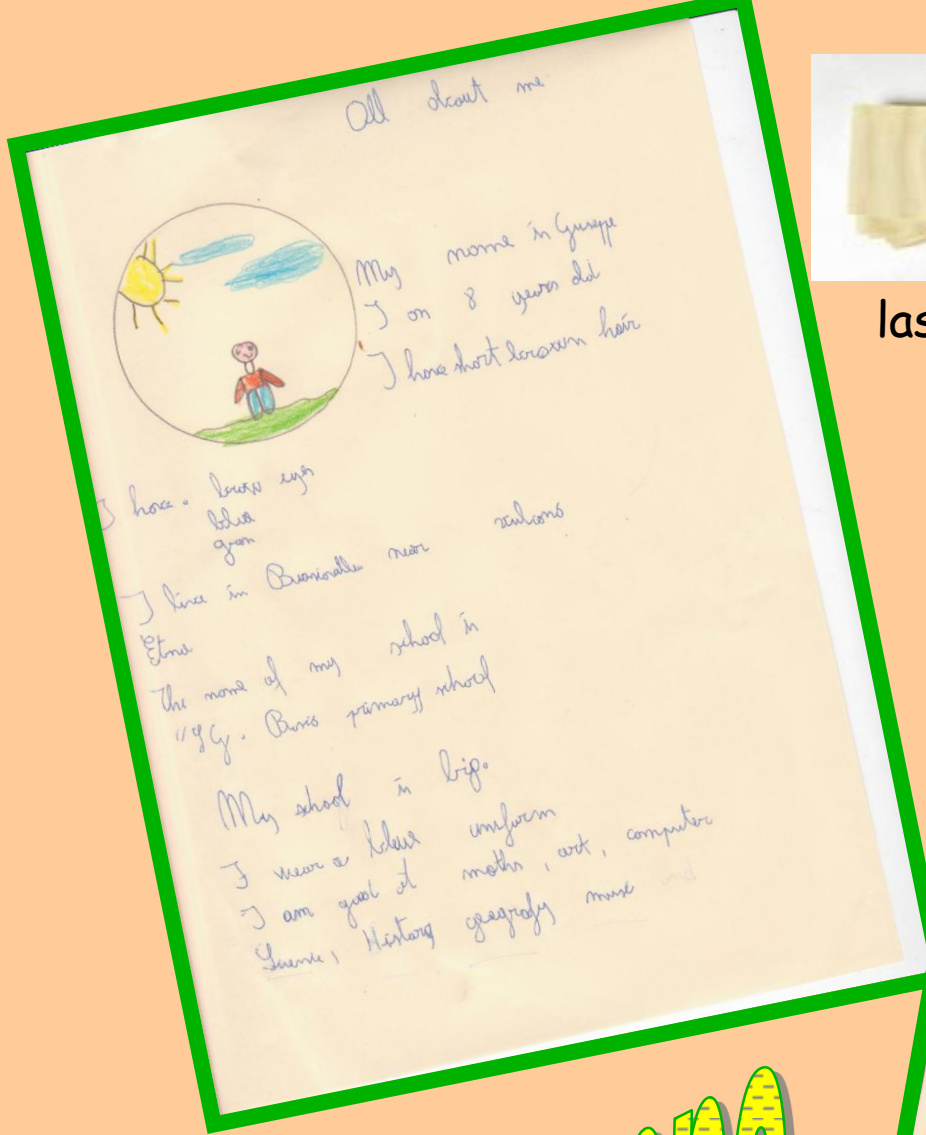 All about me
My name is Giuseppe
I am 8 years old
I have short brown hair
las
I have brown eyes
blue
green
I live in near vulcano
Etna
The name of my school is
primary school
My school is big.
I wear a blue uniform
I am good at maths, art, computer
Science, History geografy music and